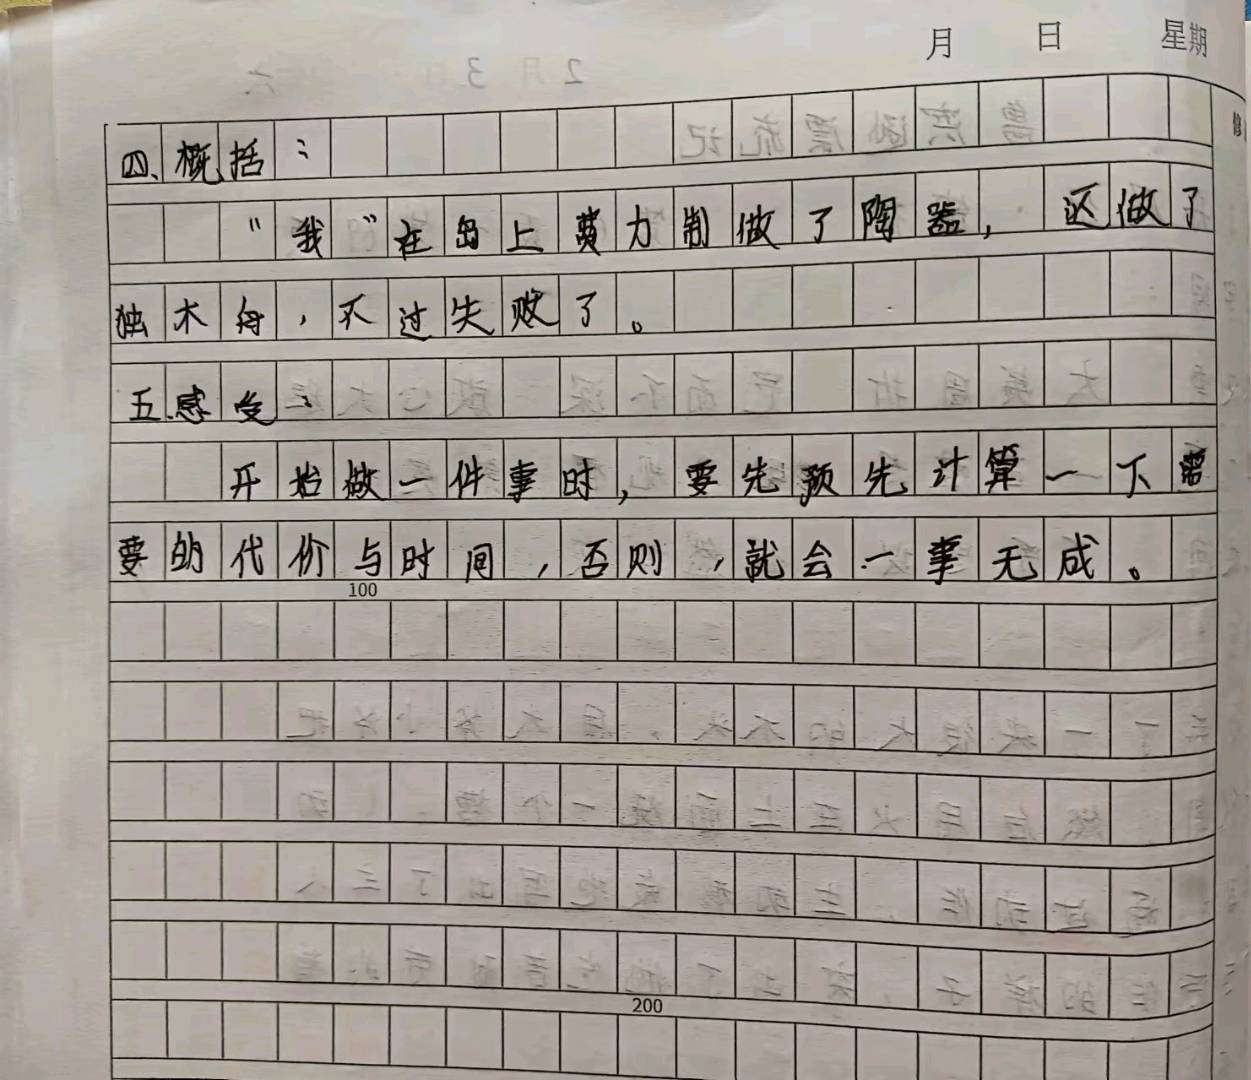 月 日 星期
四、概括：
“我”在岛上费力制做了陶器，还做了
独木舟，不过失败了。
五、感受：
开始做一件事时，要先预先计算一下需
要的代价与时间，否则，就会一事无成。
100
200